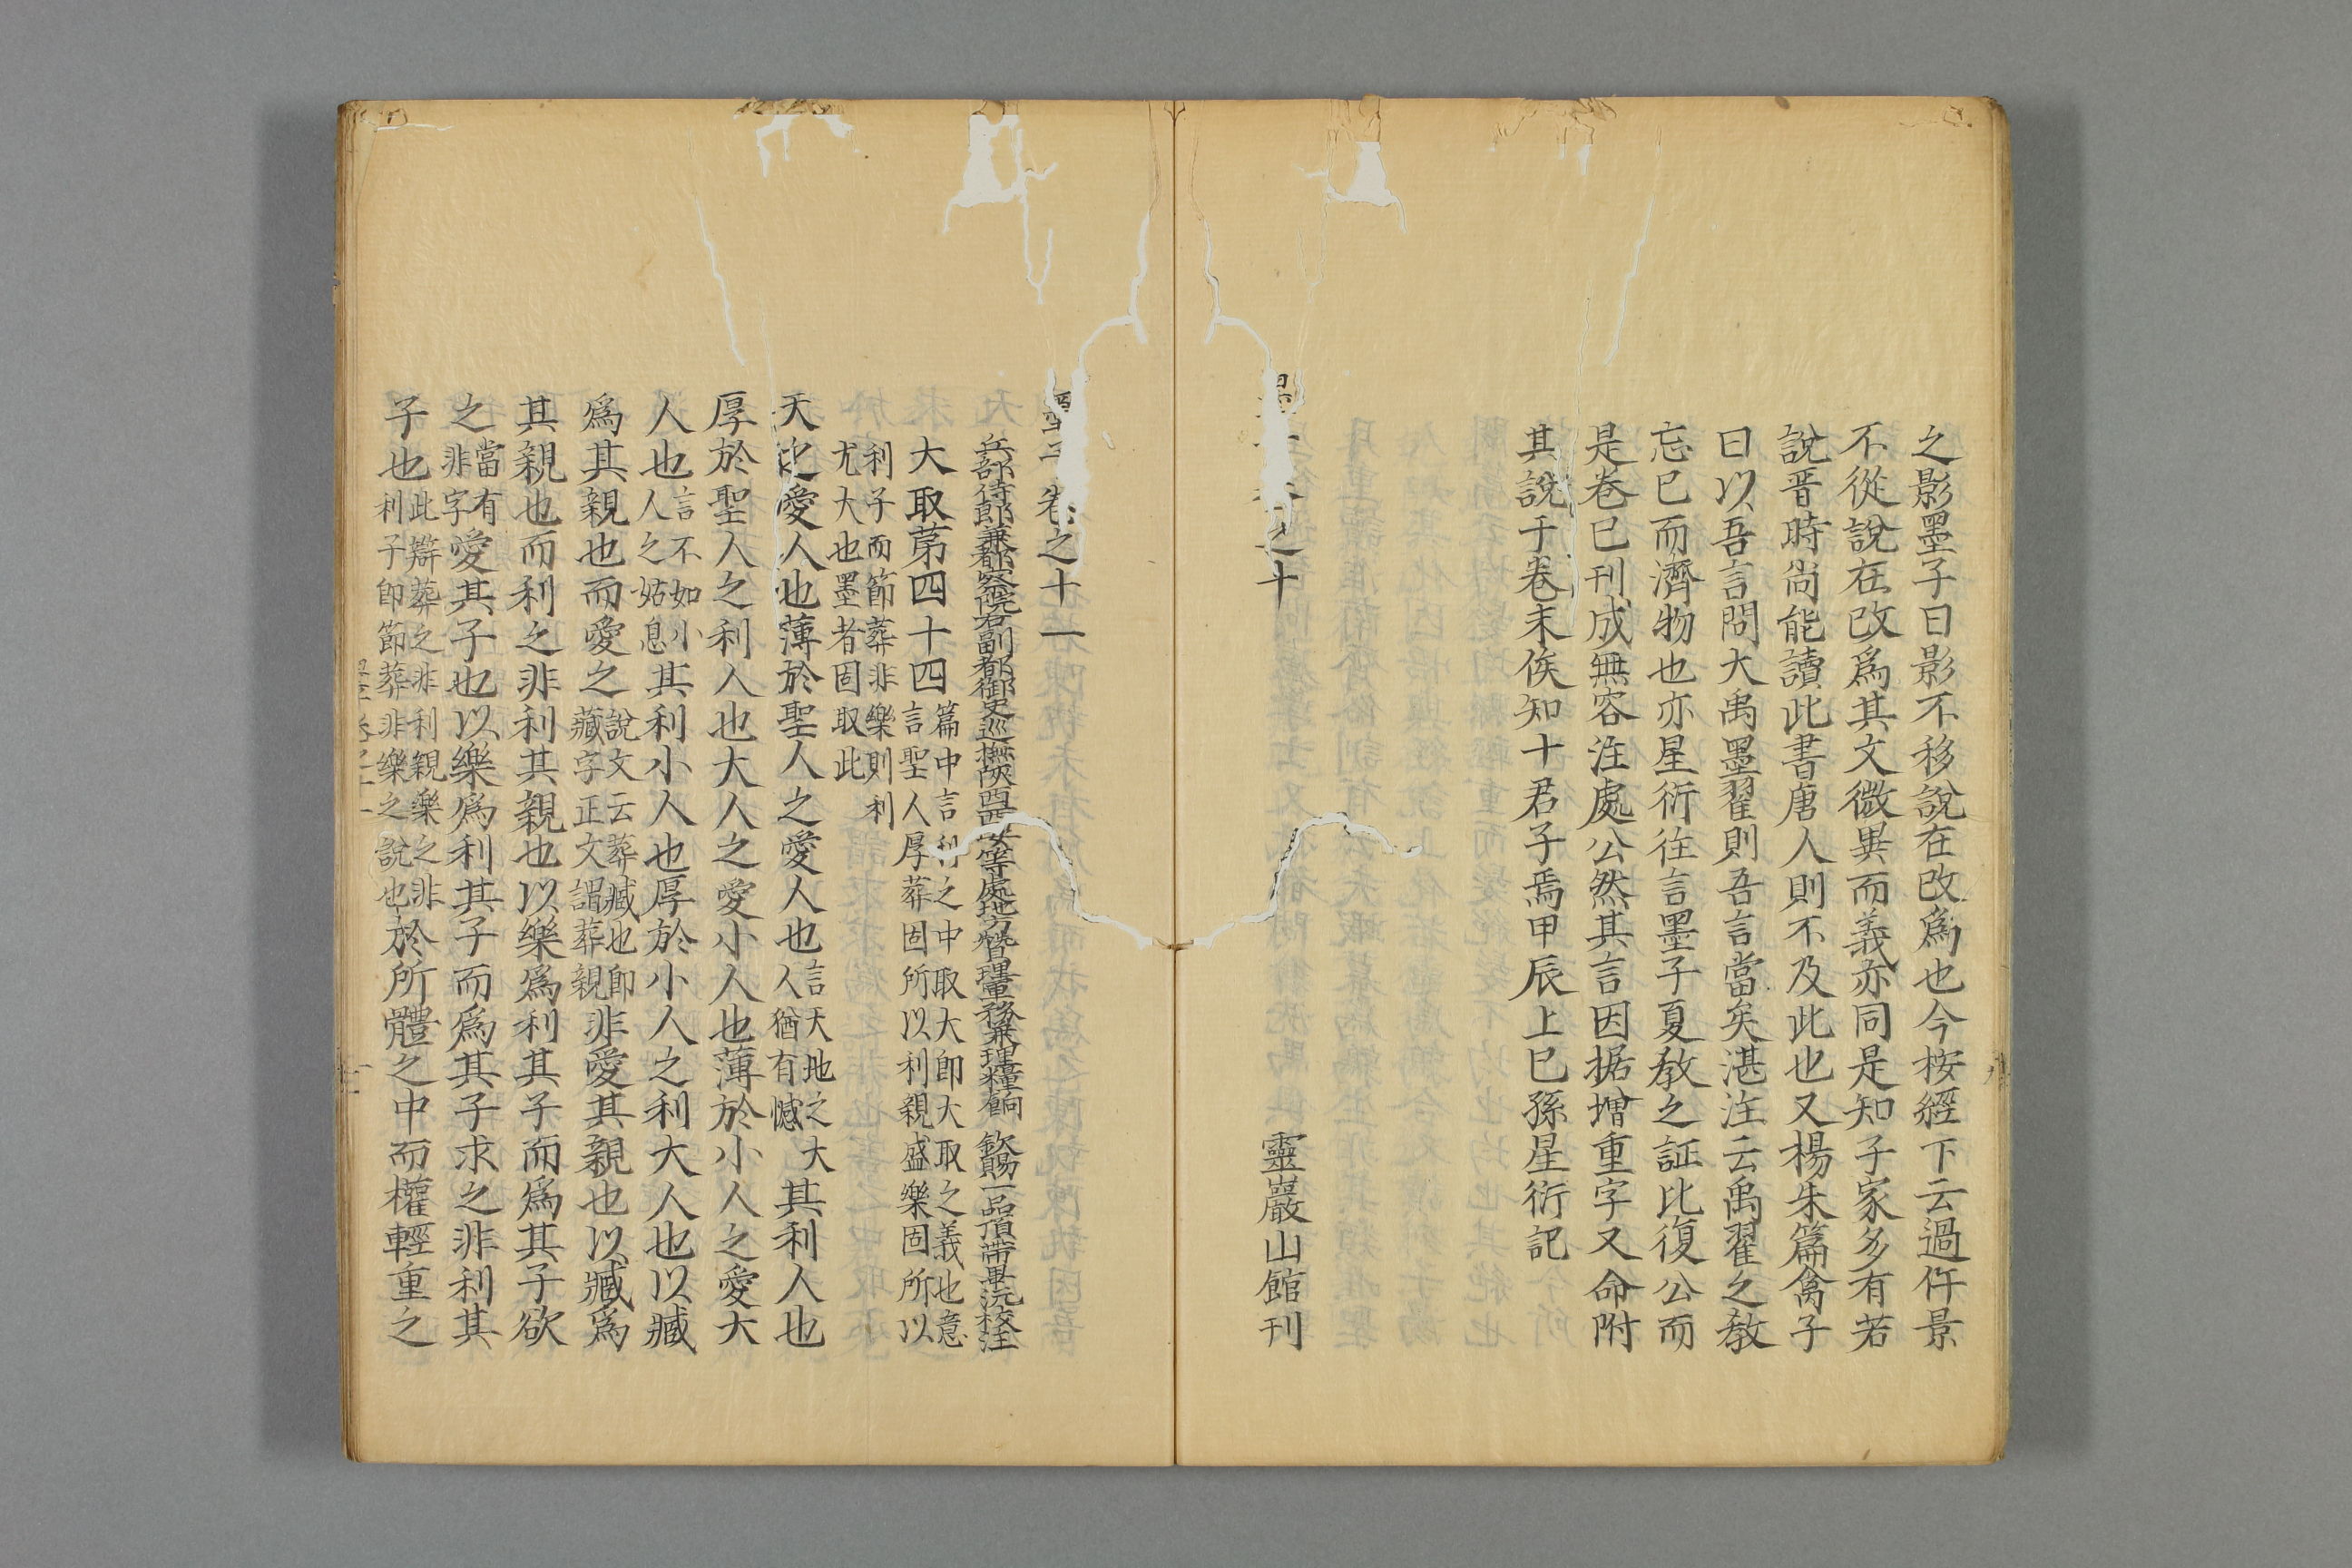 之影墨子曰影不移說在改爲也今桉經下云過仵景
不從說在改爲其文微異而義亦同是知子家多有若
說晋時尚能讀此書唐人則不及此也又楊朱篇禽子
曰以吾言問大禹墨翟則吾言當矣湛注云禹翟之敎
忘已而濟物也亦星衍往言墨子夏敎之証比復公而
是卷已刊成無容注處公然其言因据增重字又命附
其說于卷末俟知十君子焉甲辰上巳孫星衍記
之十
靈巖山館刊
卷之十一
兵部侍郎兼都察院右副都御史巡撫陝西西安等處地方贊理軍務兼理糧餉 欽賜一品頂帶畢沅校注
大取第四十四篇中言利之中取大卽大取之義也意
言聖人厚葬固所以利親盛樂固所以
利子而節葬非樂則利
尤大也墨者固取此
天之愛人也薄於聖人之愛人也言天地之大
人猶有憾其利人也
厚於聖人之利人也大人之愛小人也薄於小人之愛大
人也言不如小
人之姑息其利小人也厚於小人之利大人也以臧
爲其親也而愛之說文云葬臧也卽
藏字正文謂葬親非愛其親也以臧爲
其親也而利之非利其親也以樂爲利其子而爲其子欲
之當有
非字愛其子也以樂爲利其子而爲其子求之非利其
子也此辯葬之非利親樂之非
利子卽節葬非樂之說也於所體之中而權輕重之